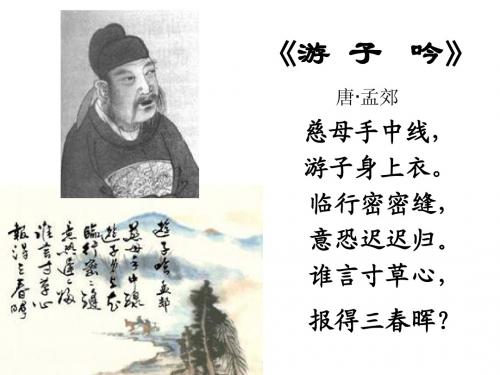 《游 子 吟》
唐·孟郊
慈母手中线，
游子身上衣。
临行密密缝，
意恐迟迟归。
谁言寸草心，
报得三春晖？
遊子吟 孟郊
慈母手中線
遊子身上衣
臨行密密縫
意恐遲遲歸
誰言寸草心
報得三春暉